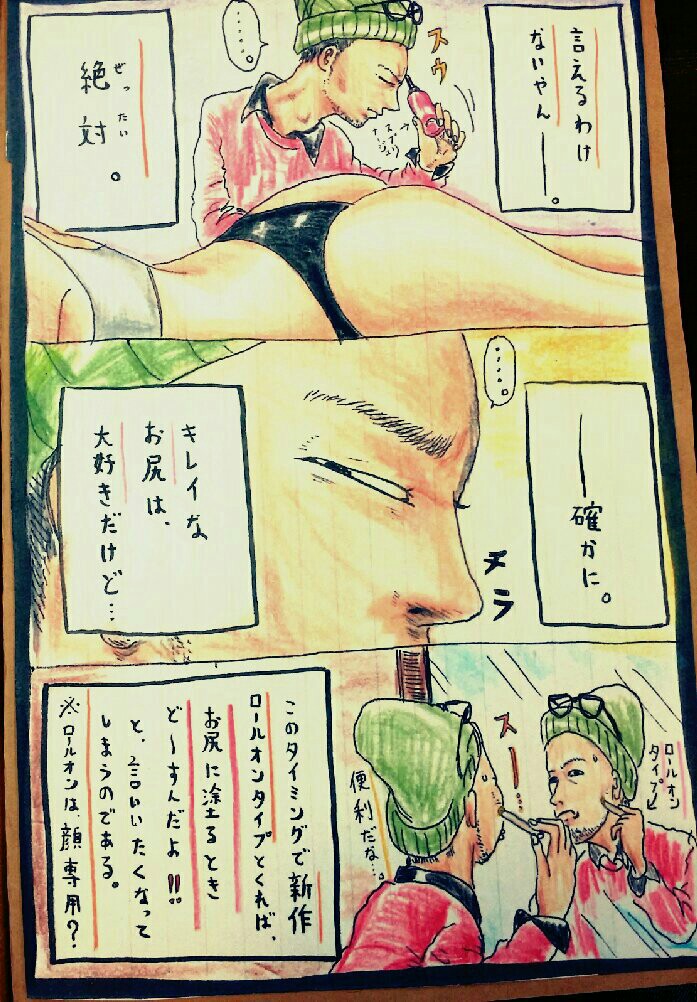 言えるわけ
ないやん――。
スウ
……。
絶対。
ぜったい
――確かに。
……。
チラ
キレイな
お尻は、
大好きだけど…
ロールオン
タイプヒ
スーー…
便利だな…。
このタイミングで新作
ロールオンタイプとくれば、
お尻に塗るとき
ど〜すんだよ!!
と、言いいたくなって
しまうのである。
※ロールオンは、顔専用?